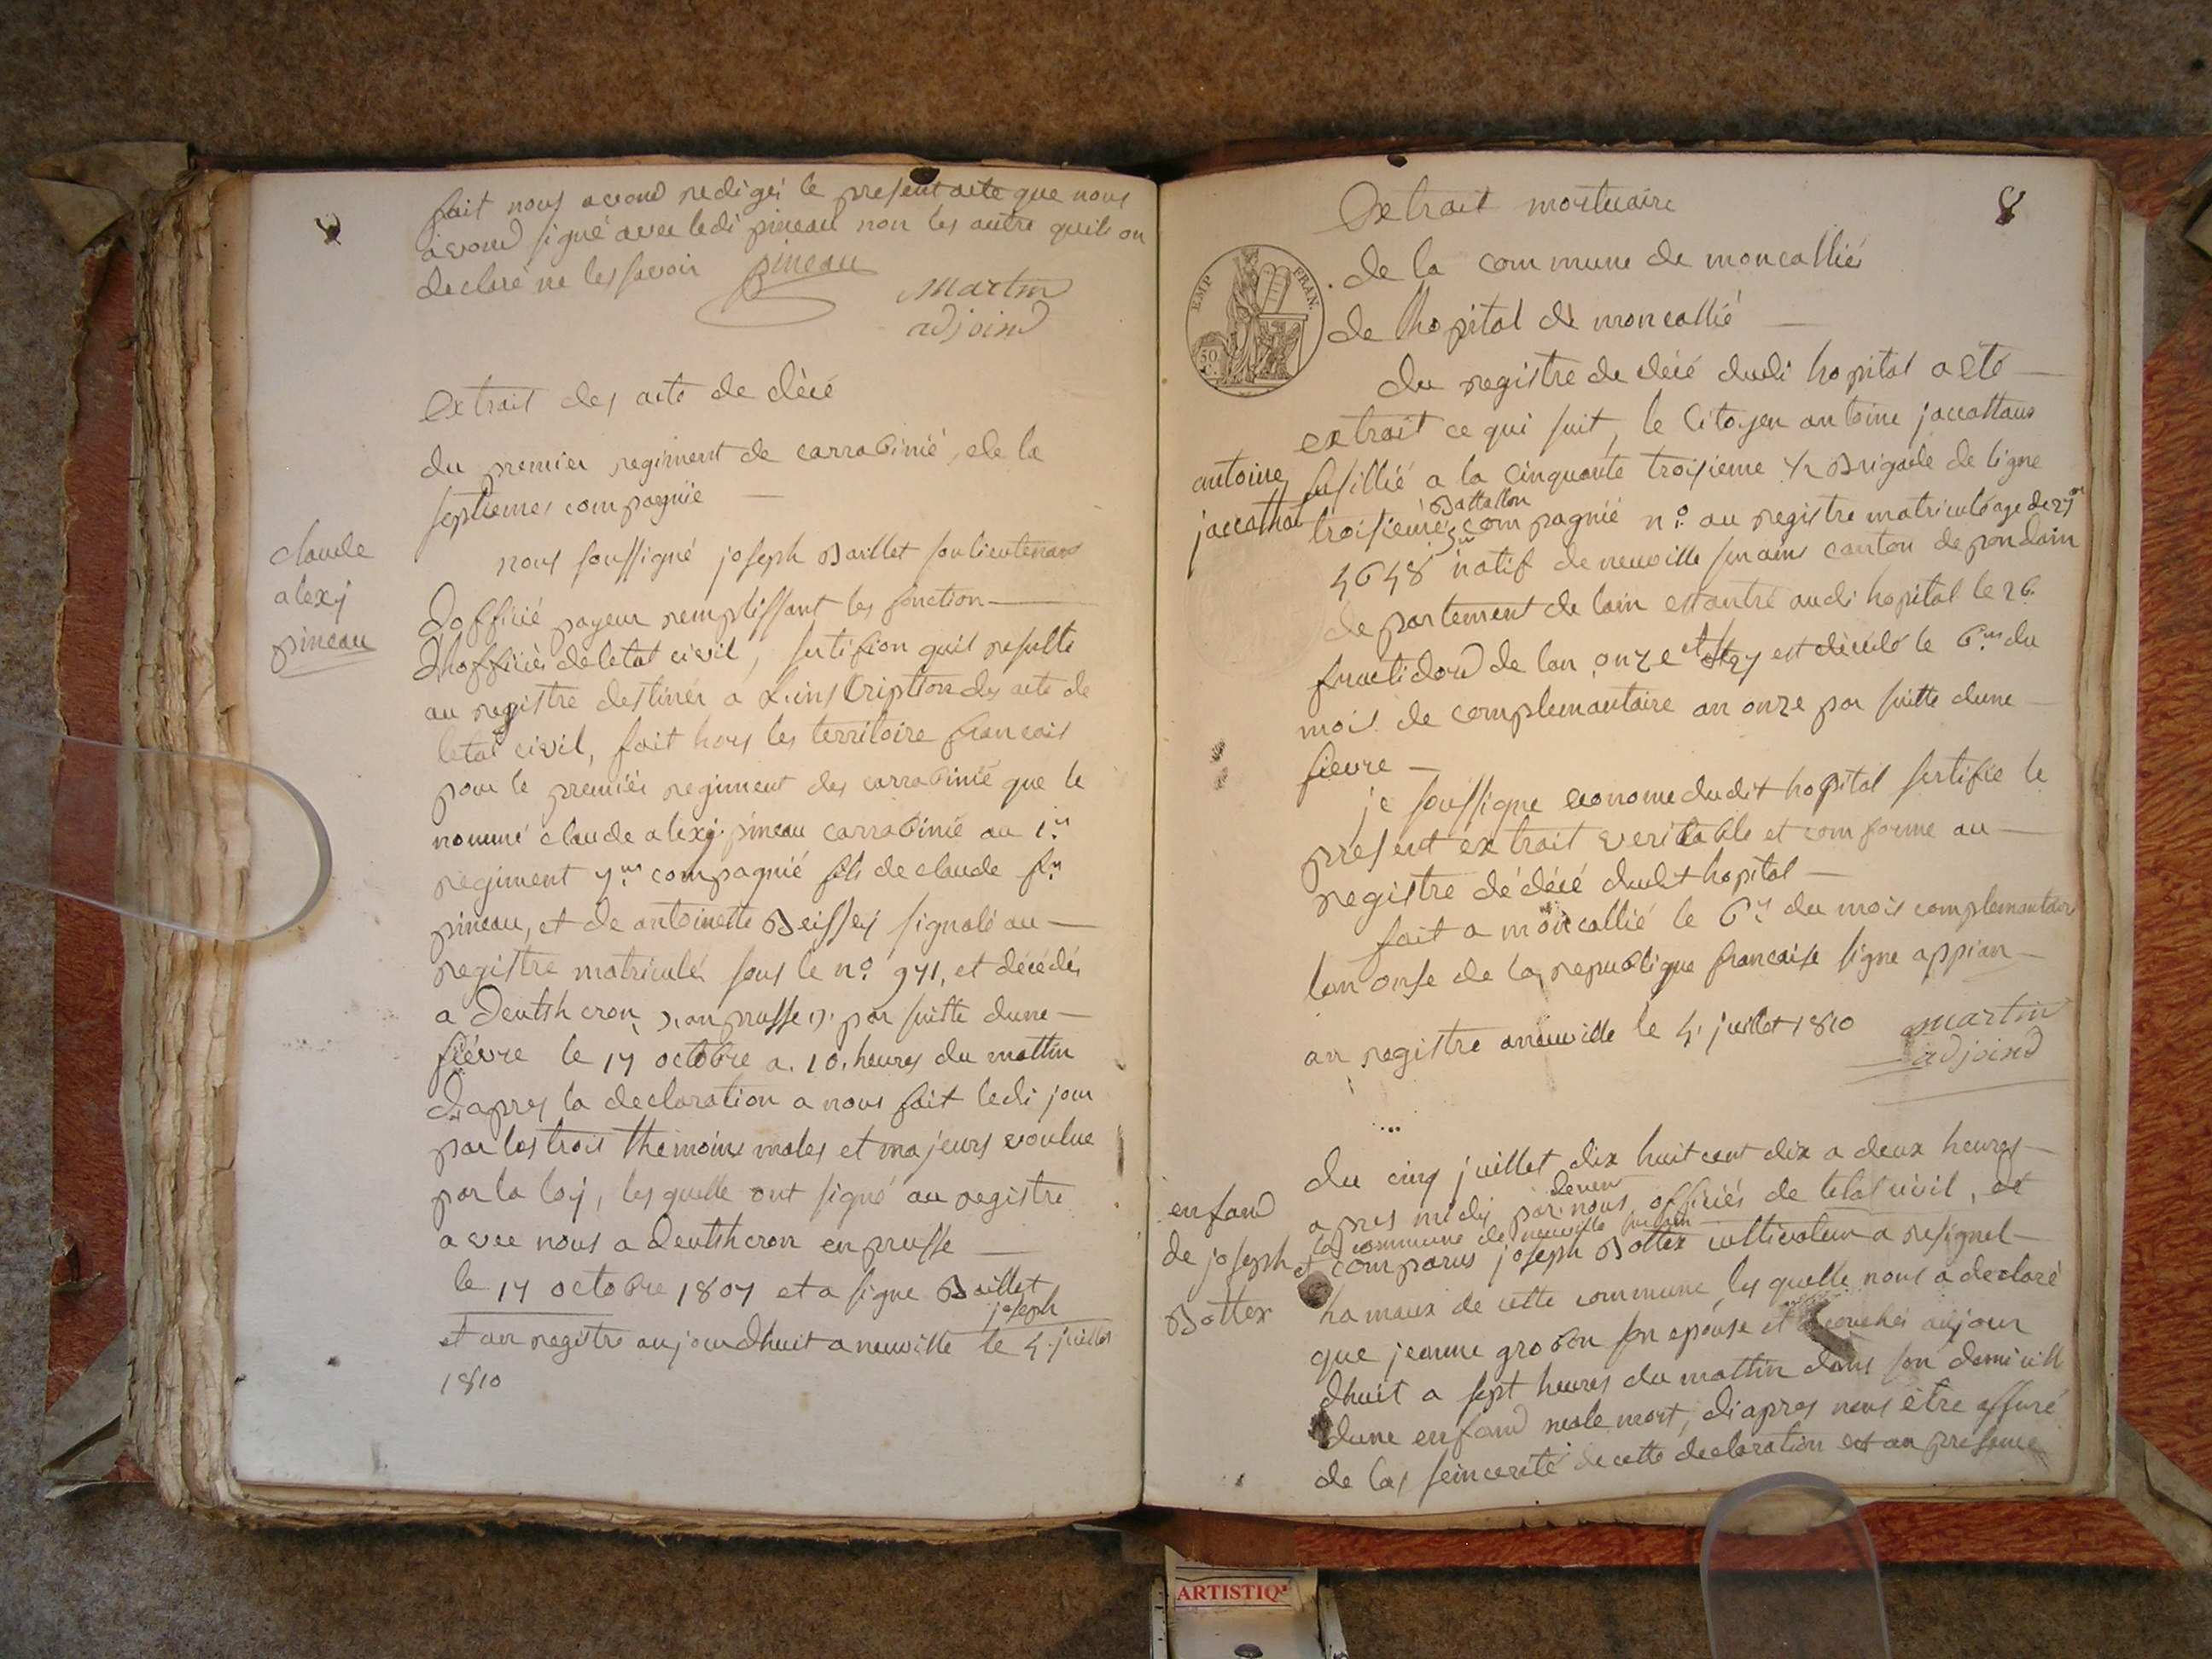 fait nous avond redigé le present acte que nous
avond signé avec ledi pineau non les autre quils on
declaré ne les savoir pineau
Martin
adjoind
Extrait des acte de décé
du premier regiment de carrabinié, de la
septiemes compagnie
claude
alexj
pineau
nous soussigné joseph Baillet soulieutenand
Dofficié payeur remplissant les fonction
Dhofficiés de letat civil, sertifion quil resulte
au registre destinés a Linscription des acte de
letat civil, fait hors les territoire francais
pour le premiés regiment des carrabinié que le
nommé claude alexj pineau carrabinié au 1.er
regiment 7.me compagnié fils de claude f.s
pineau, et de antoinette Beissej signalé au
registre matriculés sous le n.o 971, et décédés
a Deutsh cron, (, an prusse ). par suitte dune
fiévre le 17 octobre a. 10. heures du mattin
diapres la declaration a nous fait ledi jour
par les trois themoins males et majeurs voulue
par la loj, les quelle ont signé au registre
avec nous a Deutshcron en prusse
le 17 octobre 1807 et a signe Baillet
joseph
et an registre aujourdhuit a neuville le 4. juillet
1810
Extrait mortuaire
EMP FRAN.
50 C.
de la commune de moncalliés
de lhopital de moncallié
du registre de décé dudi hopital a eté
extrait ce qui suit, le Citoyen antoine jaccattaus
antoine
jaccathat
fusillié a la Cinquante troisieme ½ Brigade de ligne
Batallon
troisieme, compagnié n.o au registre matriculé age de 27
4648 natif de neuville sur ains canton de pondain
departement de lain est antré audi hopital le 26.
fructidord de lan onze et est décédé le 6.me du
mois de complemantaire an onze par suitte dune
fievre
je soussigne economedudit hopital sertifie le
present extrait veritable et comforme au
registre dé décé dudit hopital
fait a moncallié le 6.e du mois complemantaire
lan onse de la republique francaise signe appian
an registre aneuville le 4. juillet 1810 martin
adjoind
du cinq juillet dix huit cent dix a deux heures
apres midy par deven nous officiés de letat civil, de
la commune de neuville sur lain
enfand
de joseph
Bottex
et comparus joseph Bottex cultivateur a resignel
hamaux de cette commune les quelle nous a declaré
que jeanne grobon son epouse et acouchés aujour
dhuit a sept heures du mattin dans son domicille
dune enfand male mort, diapres nous étre assuré
de las seincerité de cette declaration et an presence
ARTISTIQ